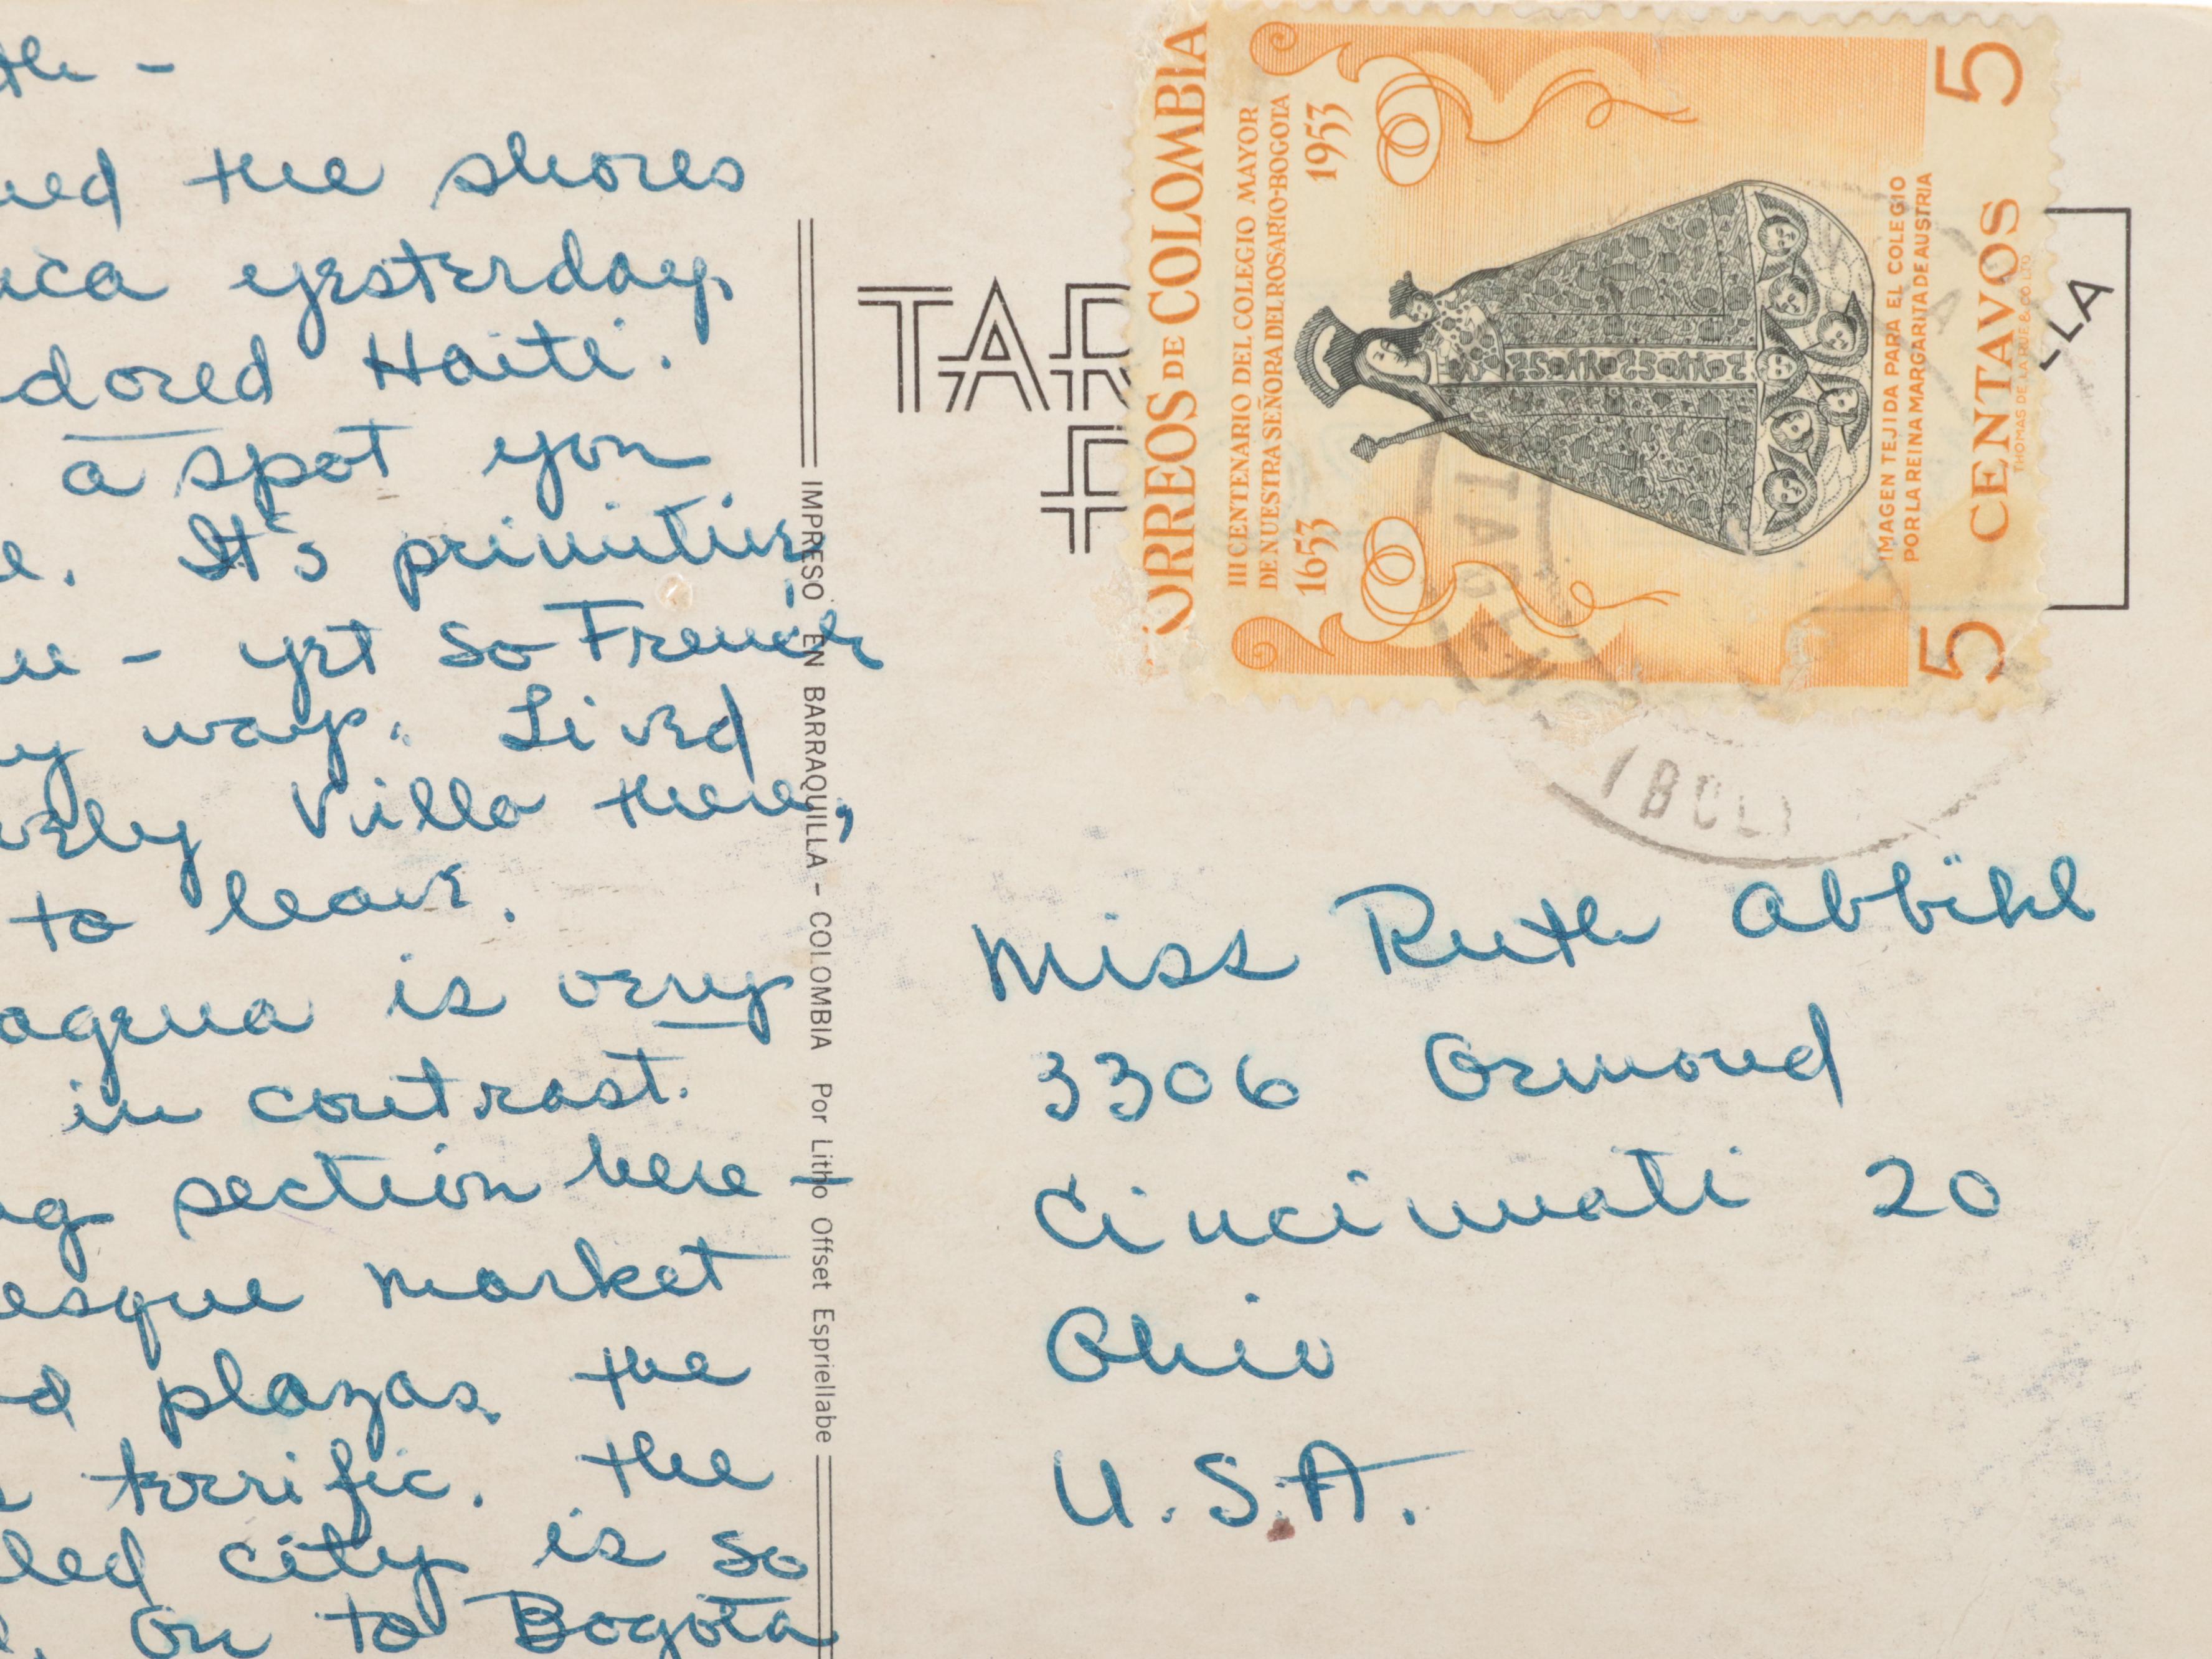 the shores
yesterday.
adored Haiti.
a spot you
It's primitive
- yet so French
way. Lived
Villa there,
to leave.
is very
in contrast.
section here -
market
plazas. the
terrific. the
city is so
On to Bogota
IMPRESO EN BARRAQUILLA - COLOMBIA Por Litho Offset Espriellabe
TAR
CORREOS DE COLOMBIA
III CENTENARIO DEL COLEGIO MAYOR
DE NUESTRA SEÑORA DEL ROSARIO-BOGOTA
1653 1953
IMAGEN TEJIDA PARA EL COLEGIO
POR LA REINA MARGARITA DE AUSTRIA
5 CENTAVOS 5
THOMAS DE LA RUE & CO. LTD.
Miss Ruth Abbihl
3306 Ormond
Cincinnati 20
Ohio
U.S.A.